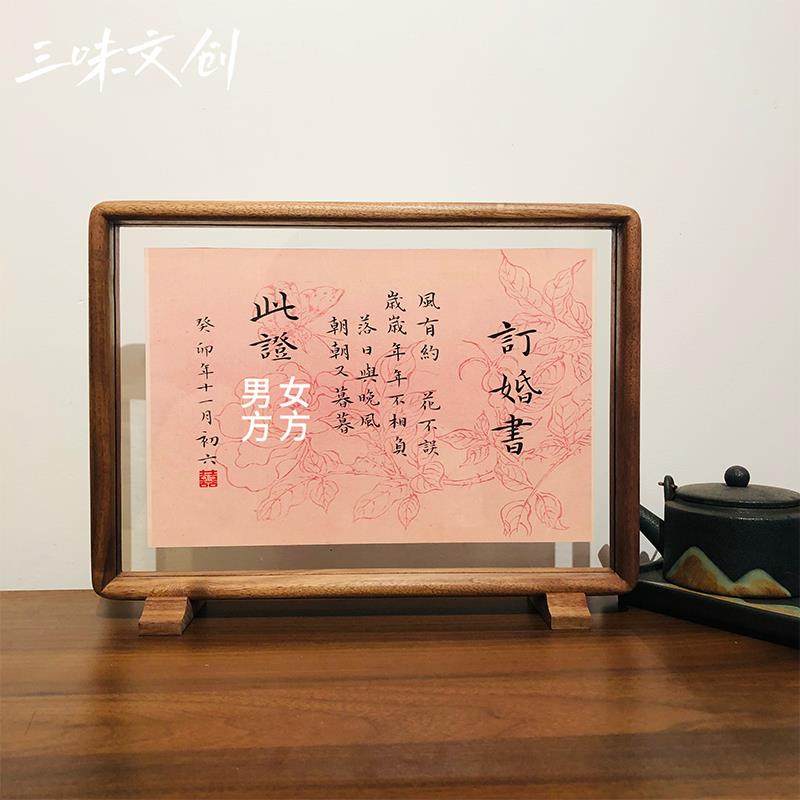 三味文创
訂婚書
風有約 花不誤
歲歲年年不相負
落日與晚風
朝朝又暮暮
此證
女方
男方
癸卯年十一月初六
囍